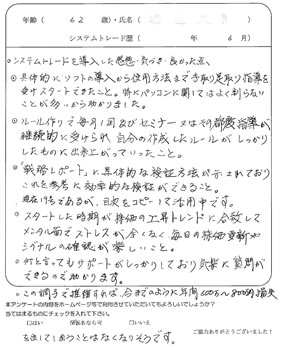 年齢（ 62 歳）・氏名（ ）
システムトレード歴（ 年 6 月）
・システムトレードを導入した感想・気づき・良かった点、
◎具体的にソフトの導入から使用方法まで手取り足取り指導を
受けスタートできたこと。特にパソコンに関してはよく判らない
ことが多いから助かりました。
◎ルール作りで毎月1回及びセミナー又はその都度指導が
継続的に受けられ自分の作成したルールがしっかり
したものに出来上がっていったこと。
◎「戦略レポート」に具体的な検証方法が示されており
これを参考に効率的な検証ができること。
現在1行もあるが、目次をコピーして活用中です。
◎スタートした時期が株価の上昇トレンドに合致して
メンタル面でストレスが少なく毎日の株価更新や
シグナルの確認が楽しいこと。
◎何と言ってもサポートがしっかりしており気楽に質問が
できるので助かります。
◦この調子で推移すれば、今までのように年間600万〜800万損失
本アンケートの内容をホームページ等で利用させていただいてもよろしいでしょうか？
当てはまるものにチェックを入れて下さい。
□はい 匿名なら可 □いいえ
ご協力ありがとうございました。
を出してしまうことはなくなりそうです。